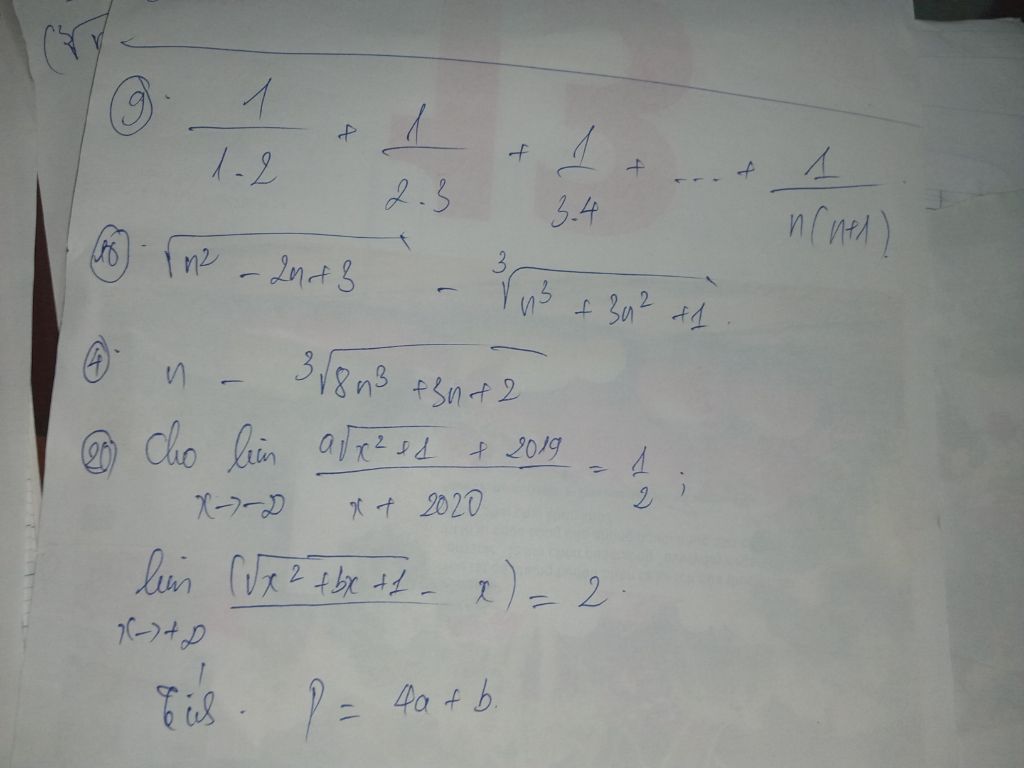 (∛
⑨. 1/(1.2) + 1/(2.3) + 1/(3.4) + ... + 1/(n(n+1))
⑯. √(n² - 2n + 3) - ∛(n³ + 3n² + 1).
④. n - ∛(8n³ + 3n + 2)
⑳ Cho lim x→-∞ (a√(x² + 1) + 2019)/(x + 2020) = 1/2 ;
lim x→+∞ (√(x² + bx + 1) - x) = 2.
P = 4a + b.